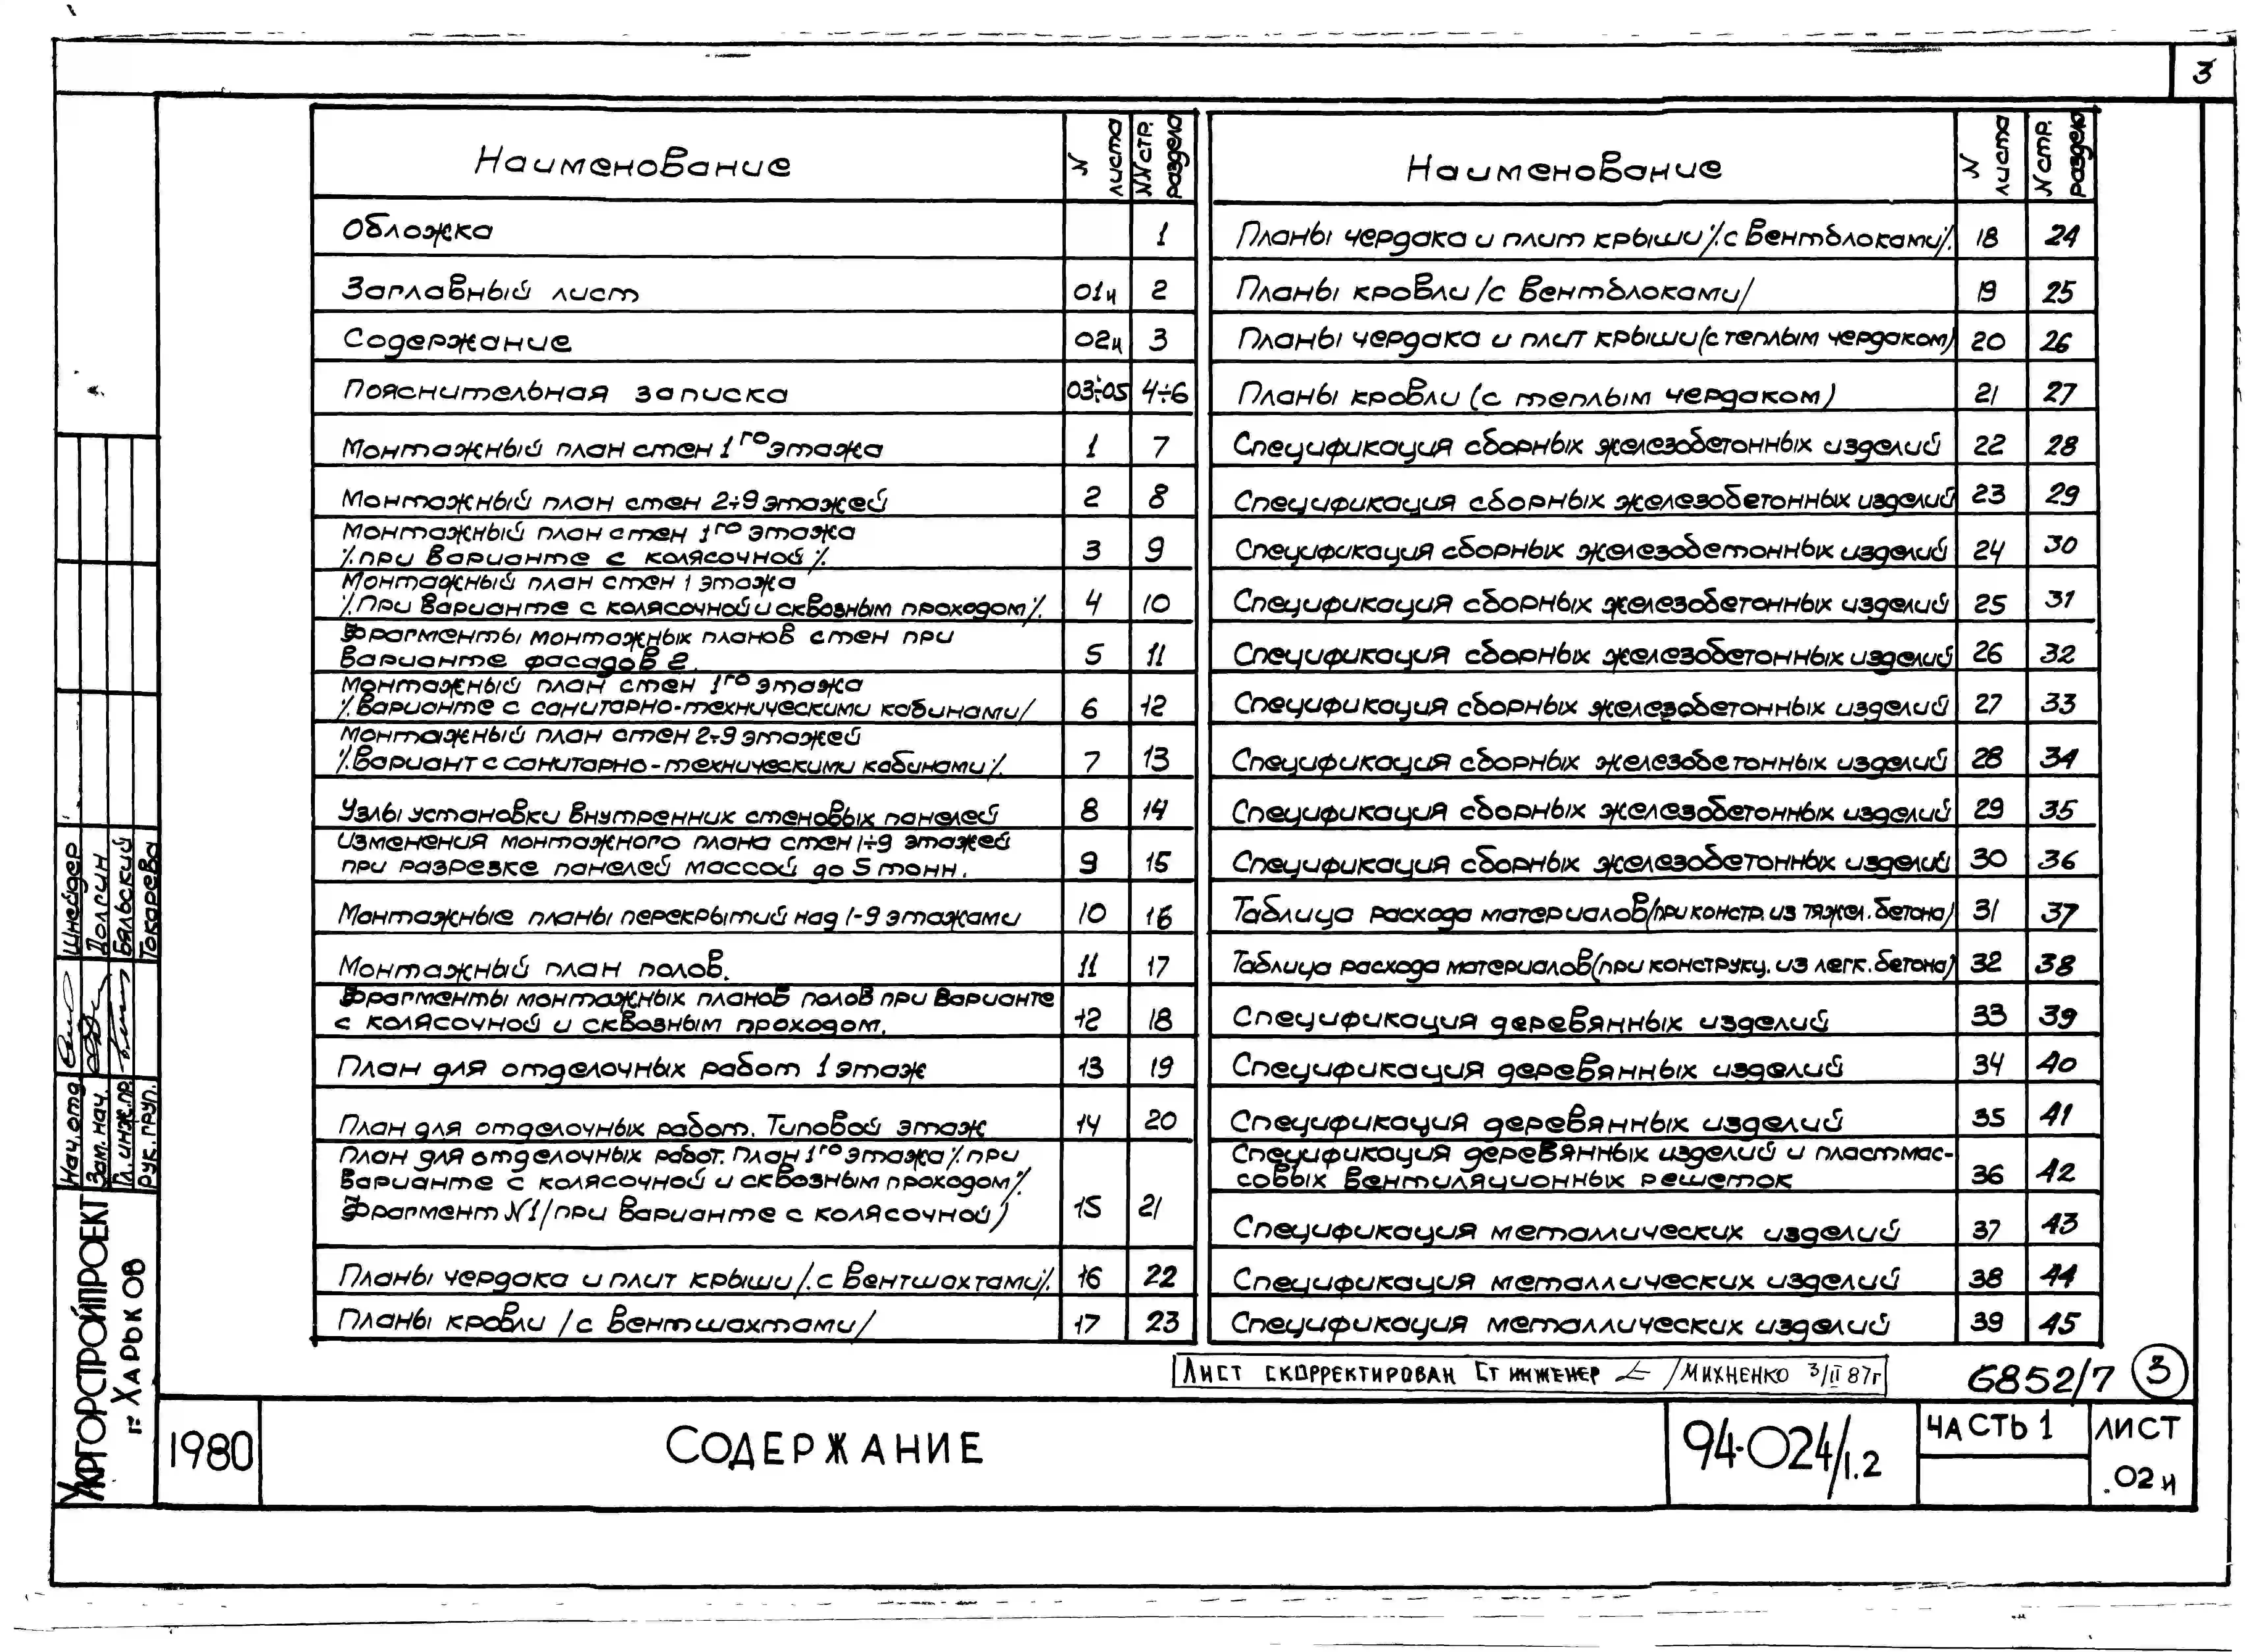 3
Наименование
N листа
NN стр. раздела
Обложка 1
Заглавный лист 01и 2
Содержание 02и 3
Пояснительная записка 03÷05 4÷6
Монтажный план стен 1го этажа 1 7
Монтажный план стен 2÷9 этажей 2 8
Монтажный план стен 1го этажа
/.при варианте с колясочной/. 3 9
Монтажный план стен 1 этажа
/.При варианте с колясочной и сквозным проходом/. 4 10
Фрагменты монтажных планов стен при
варианте фасадов 2. 5 11
Монтажный план стен 1го этажа
/.Варианте с санитарно-техническими кабинами/ 6 12
Монтажный план стен 2÷9 этажей
/.Вариант с санитарно-техническими кабинами/. 7 13
Узлы установки внутренних стеновых панелей 8 14
Изменения монтажного плана стен 1÷9 этажей
при разрезке панелей массой до 5 тонн. 9 15
Монтажные планы перекрытий над 1-9 этажами 10 16
Монтажный план полов. 11 17
Фрагменты монтажных планов полов при варианте
с колясочной и сквозным проходом. 12 18
План для отделочных работ 1 этаж 13 19
План для отделочных работ. Типовой этаж 14 20
План для отделочных работ. План 1го этажа /.при
варианте с колясочной и сквозным проходом/.
Фрагмент N1/при варианте с колясочной) 15 21
Планы чердака и плит крыши/.с вентшахтами/. 16 22
Планы кровли /с вентшахтами/ 17 23
Наименование
N листа
N стр. раздела
Планы чердака и плит крыши/.с вентблоками/. 18 24
Планы кровли /с вентблоками/ 19 25
Планы чердака и плит крыши(с теплым чердаком) 20 26
Планы кровли (с теплым чердаком) 21 27
Спецификация сборных железобетонных изделий 22 28
Спецификация сборных железобетонных изделий 23 29
Спецификация сборных железобетонных изделий 24 30
Спецификация сборных железобетонных изделий 25 31
Спецификация сборных железобетонных изделий 26 32
Спецификация сборных железобетонных изделий 27 33
Спецификация сборных железобетонных изделий 28 34
Спецификация сборных железобетонных изделий 29 35
Спецификация сборных железобетонных изделий 30 36
Таблица расхода материалов(при констр. из тяжел. бетона) 31 37
Таблица расхода материалов(при конструкц. из легк. бетона) 32 38
Спецификация деревянных изделий 33 39
Спецификация деревянных изделий 34 40
Спецификация деревянных изделий 35 41
Спецификация деревянных изделий и пластмас-
совых вентиляционных решеток 36 42
Спецификация металлических изделий 37 43
Спецификация металлических изделий 38 44
Спецификация металлических изделий 39 45
Лист скорректирован Ст инженер /Михненко 3/II 87г
6852/7 3
Нач. отд Шнейдер
Зам. нач. Долгин
Гл. инж. пр. Бяльский
Рук. груп. Токарева
Укргорстройпроект
г. Харьков
1980
Содержание
94-024/1.2
Часть 1
Лист
.02и